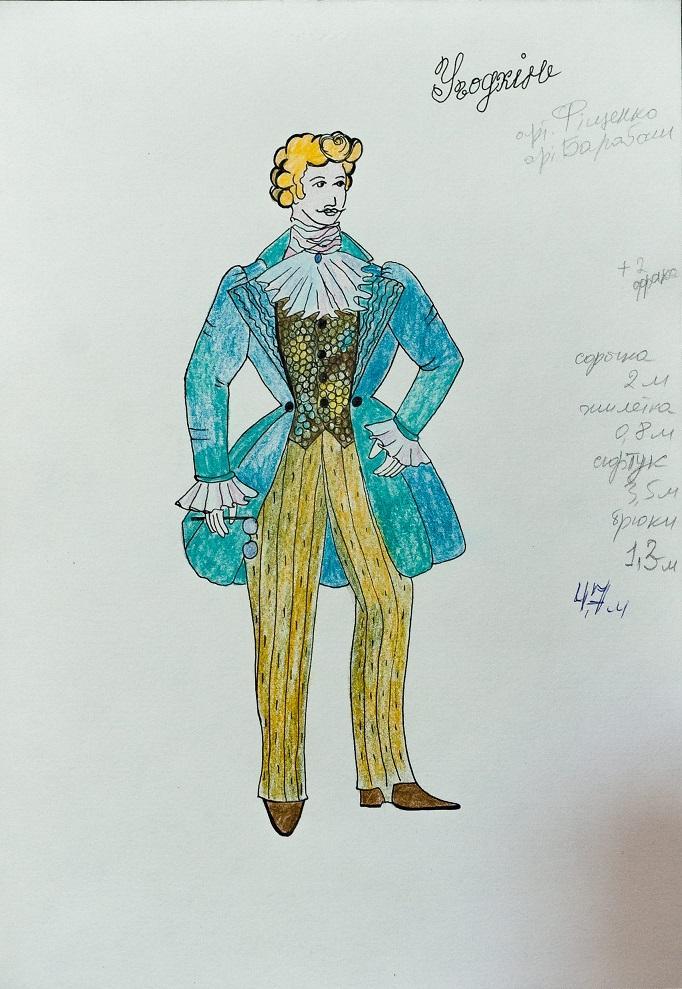 Угодкінь
арт. Фіщенко
арт. Барабаш
+ 2
сорочка
2 м
жилетка
0,8 м
сюртук
3,5 м
брюки
1,3 м
4,7 м